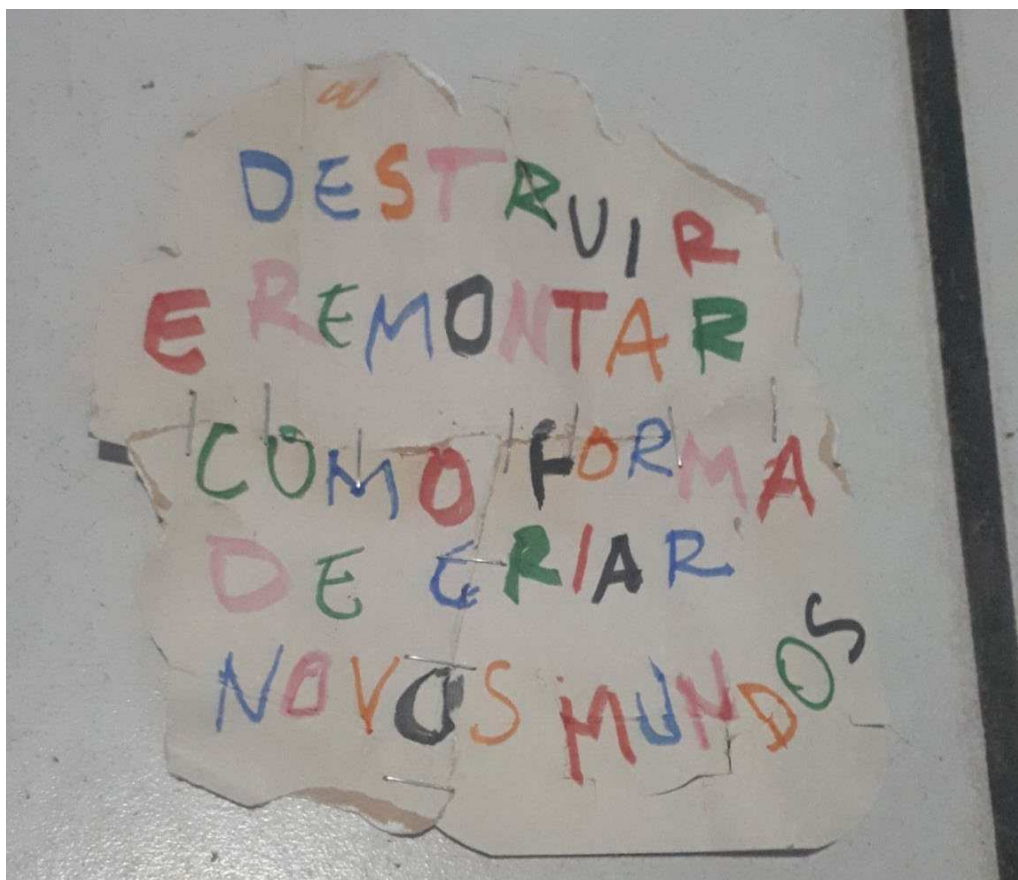 DESTRUIR
E REMONTAR
COMO FORMA
DE CRIAR
NOVOS MUNDOS